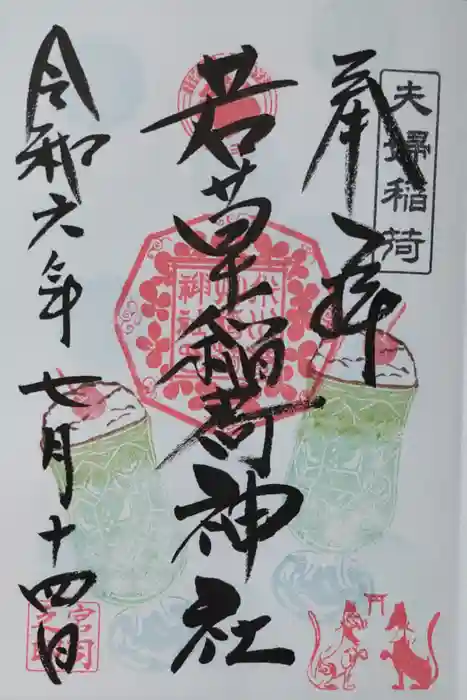 夫婦稲荷
奉拝
若草稲荷神社
令和六年七月十四日